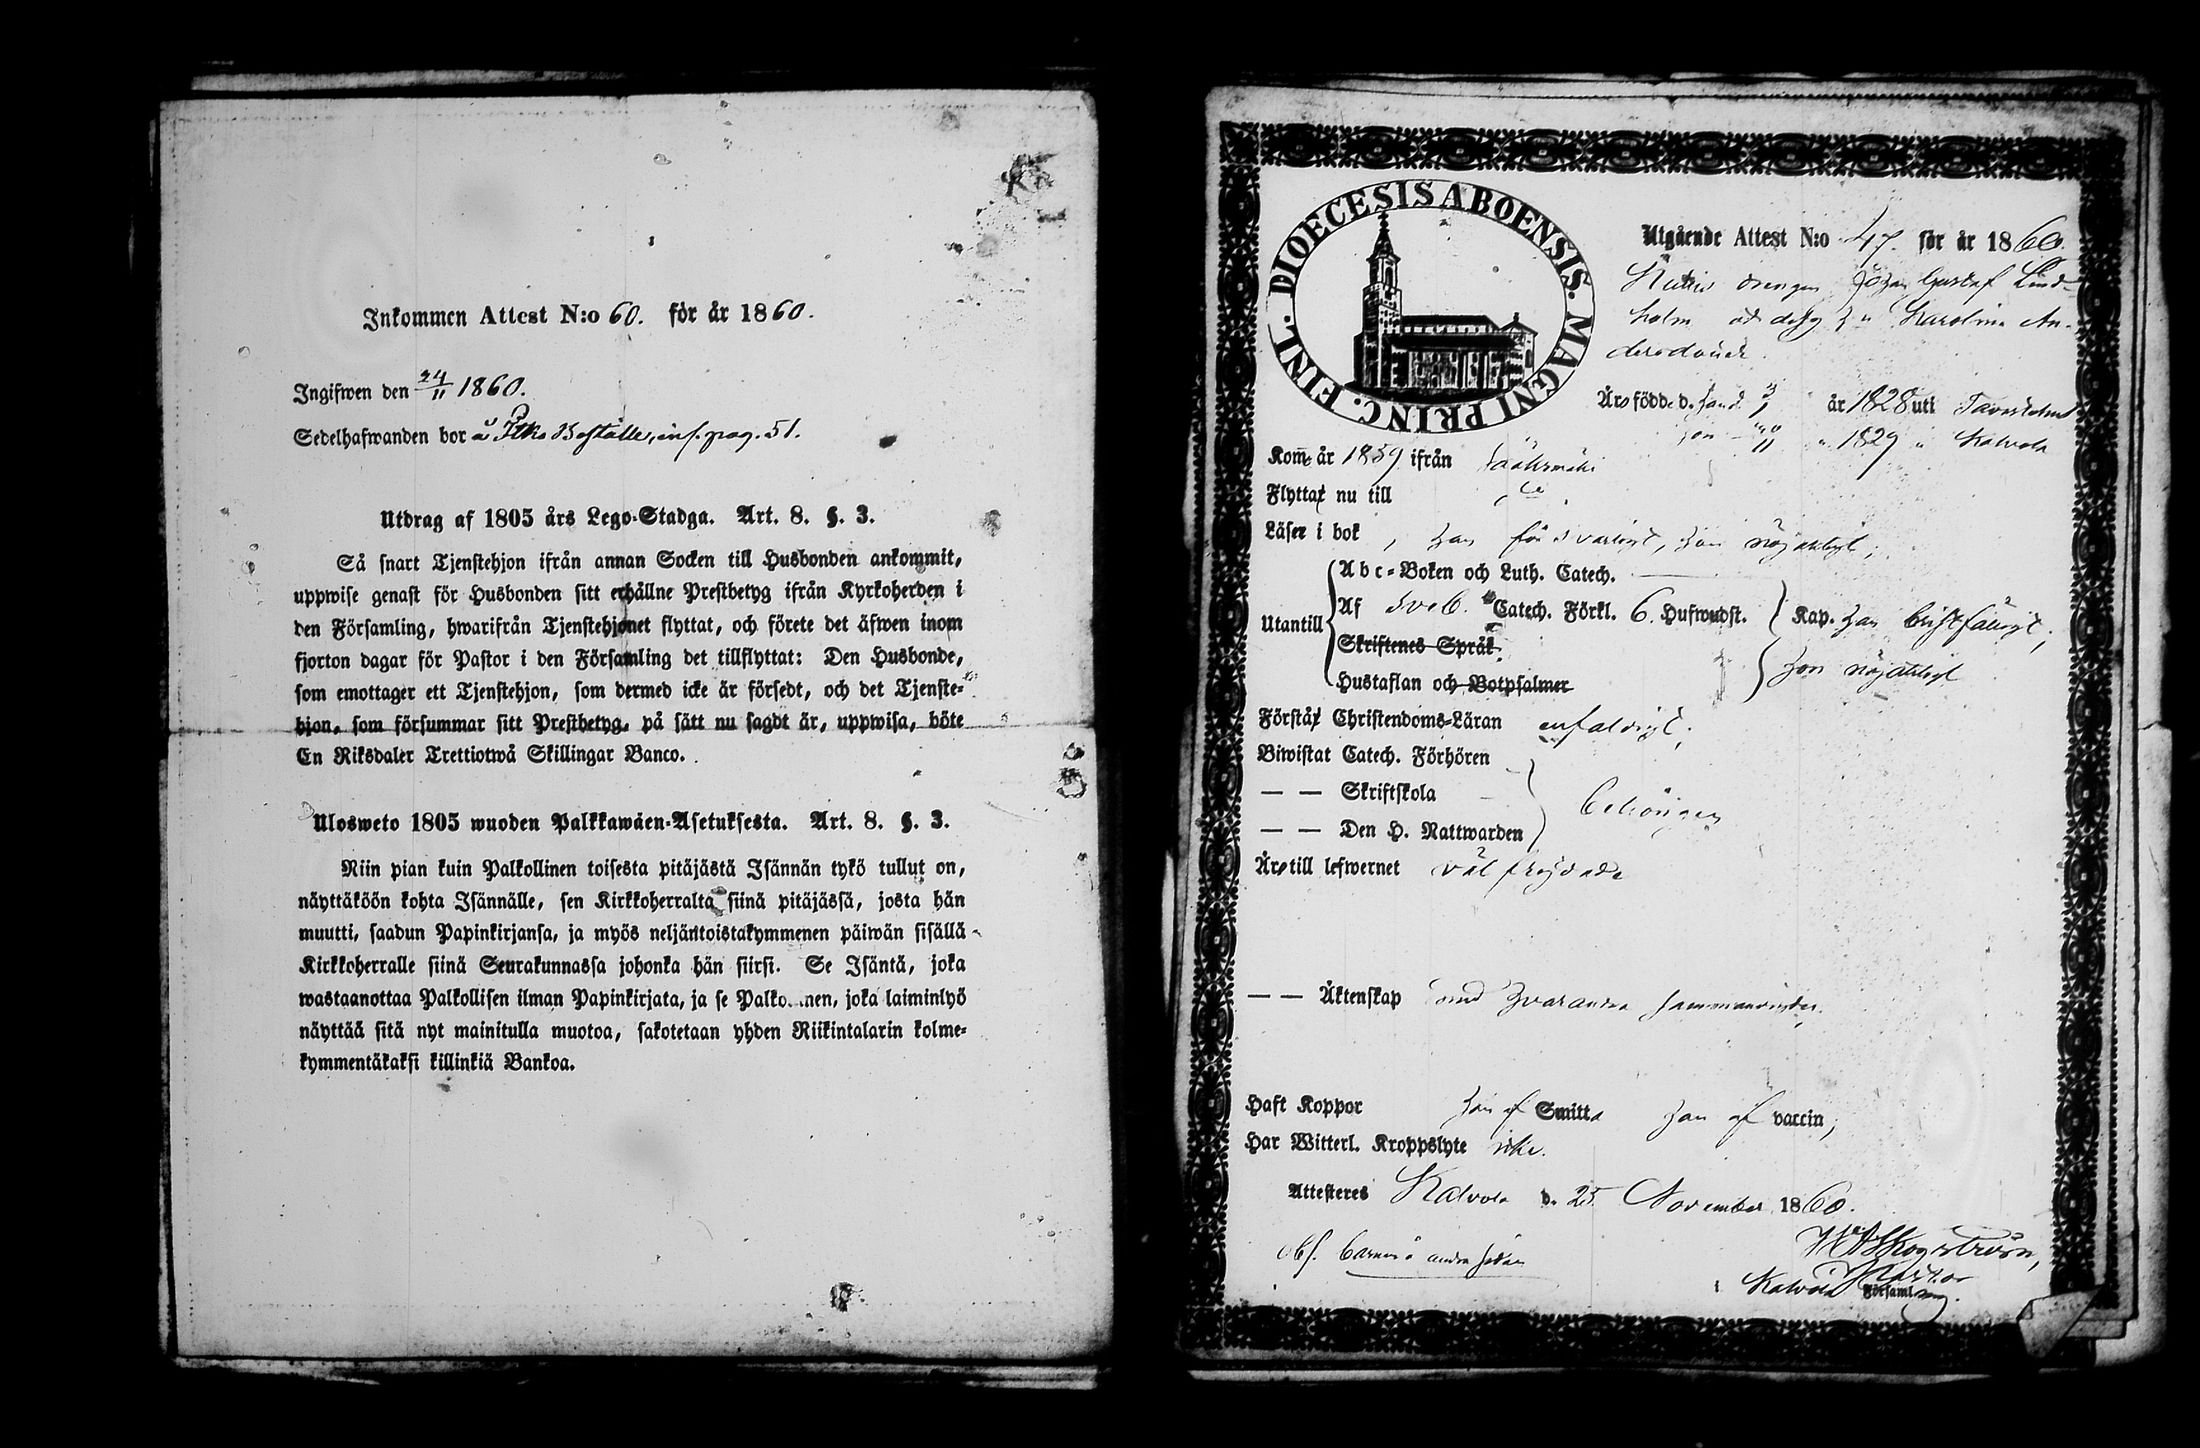 Inkommen Attest N:o 60. för år 1860.
Ingifwen den 24/11 1860.
Sedelhafwanden bor å Boställe, inf. pag. 51.
Utdrag af 1805 års Lego-Stadga. Art. 8. §. 3.
Så snart Tjenstehjon ifrån annan Socken till Husbonden ankommit,
uppwise genast för Husbonden sitt erhållne Prestbetyg ifrån Kyrkoherden i
den Församling, hwarifrån Tjenstehjonet flyttat, och förete det äfwen inom
fjorton dagar för Pastor i den Församling det tillflyttat: Den Husbonde,
som emottager ett Tjenstehjon, som dermed icke är försedt, och det Tjenste-
hjon, som försummar sitt Prestbetyg, på sätt nu sagdt är, uppwisa, böte
En Riksdaler Trettiotwå Skillingar Banco.
Ulosweto 1805 wuoden Palkkawäen-Asetuksesta. Art. 8. §. 3.
Niin pian kuin Palkollinen toisesta pitäjästä Isännän tykö tullut on,
näyttäköön kohta Isännälle, sen Kirkkoherralta siinä pitäjässä, josta hän
muutti, saadun Papinkirjansa, ja myös neljäntoistakymmenen päiwän sisällä
Kirkkoherralle siinä Seurakunnassa johonka hän siirsi. Se Isäntä, joka
wastaanottaa Palkollisen ilman Papinkirjata, ja se Palkollinen, joka laiminlyö
näyttää sitä nyt mainitulla muotoa, sakotetaan yhden Riikintalarin kolme-
kymmentäkaksi killinkiä Bankoa.
DIOECESIS ABOENSIS. MAGNI PRINC. FINL.
Utgående Attest N:o 47. för år 1860.
drengen Johan Gustaf Lind-
holm och dess h:u Karolina An-
dersdotter
Äro födde d. han d. 3/1 år 1828 uti Tavastehus
hon /11 " 1829 " Kalvola
Kom år 1859 ifrån Sääksmäki
Flytta nu till
Läser i bok, han försvarligt, hon nöjaktigt;
Utantill
Abc-Boken och Luth. Catech.
Af Sveb. Catech. Förkl. 6. Hufwudst.
Skriftenes Språk
Hustaflan och Botpsalmer
Kap. han bristfälligt;
hon nöjaktigt
Förstå Christendoms-Läran enfaldigt;
Biwistat Catech. Förhören
— — Skriftskola
— — Den H. Nattwarden
behörigen
Äro till lefwernet väl frejdade
— — Äktenskap med hvarandra sammanvigde.
Haft Koppor hon af Smitta han af vaccin;
Har Witterl. Kroppslyte icke.
Attesteres Kalvola d. 25 November 1860.
obs. barnen å andra sidan
Skogström,
Pastor
i Kalvola Församling.